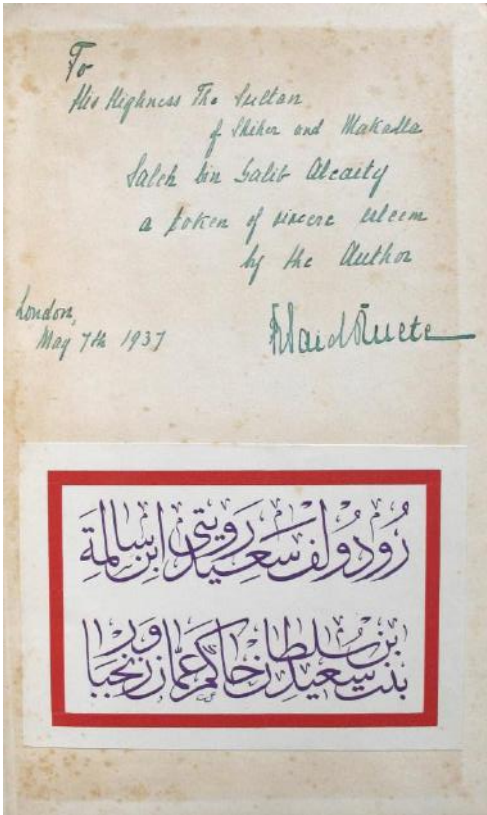 To
His Highness The Sultan
of Shiher and Makalla
Saleh bin Galib Alcaity
a token of sincere esteem
by the Author
London,
May 7th 1937
RSaidRuete
رُودُولف سَعِيد رَويتي ابن سَالمَة
بنت سَعيد بن سُلطان حَاكم عُمان وزنجبار